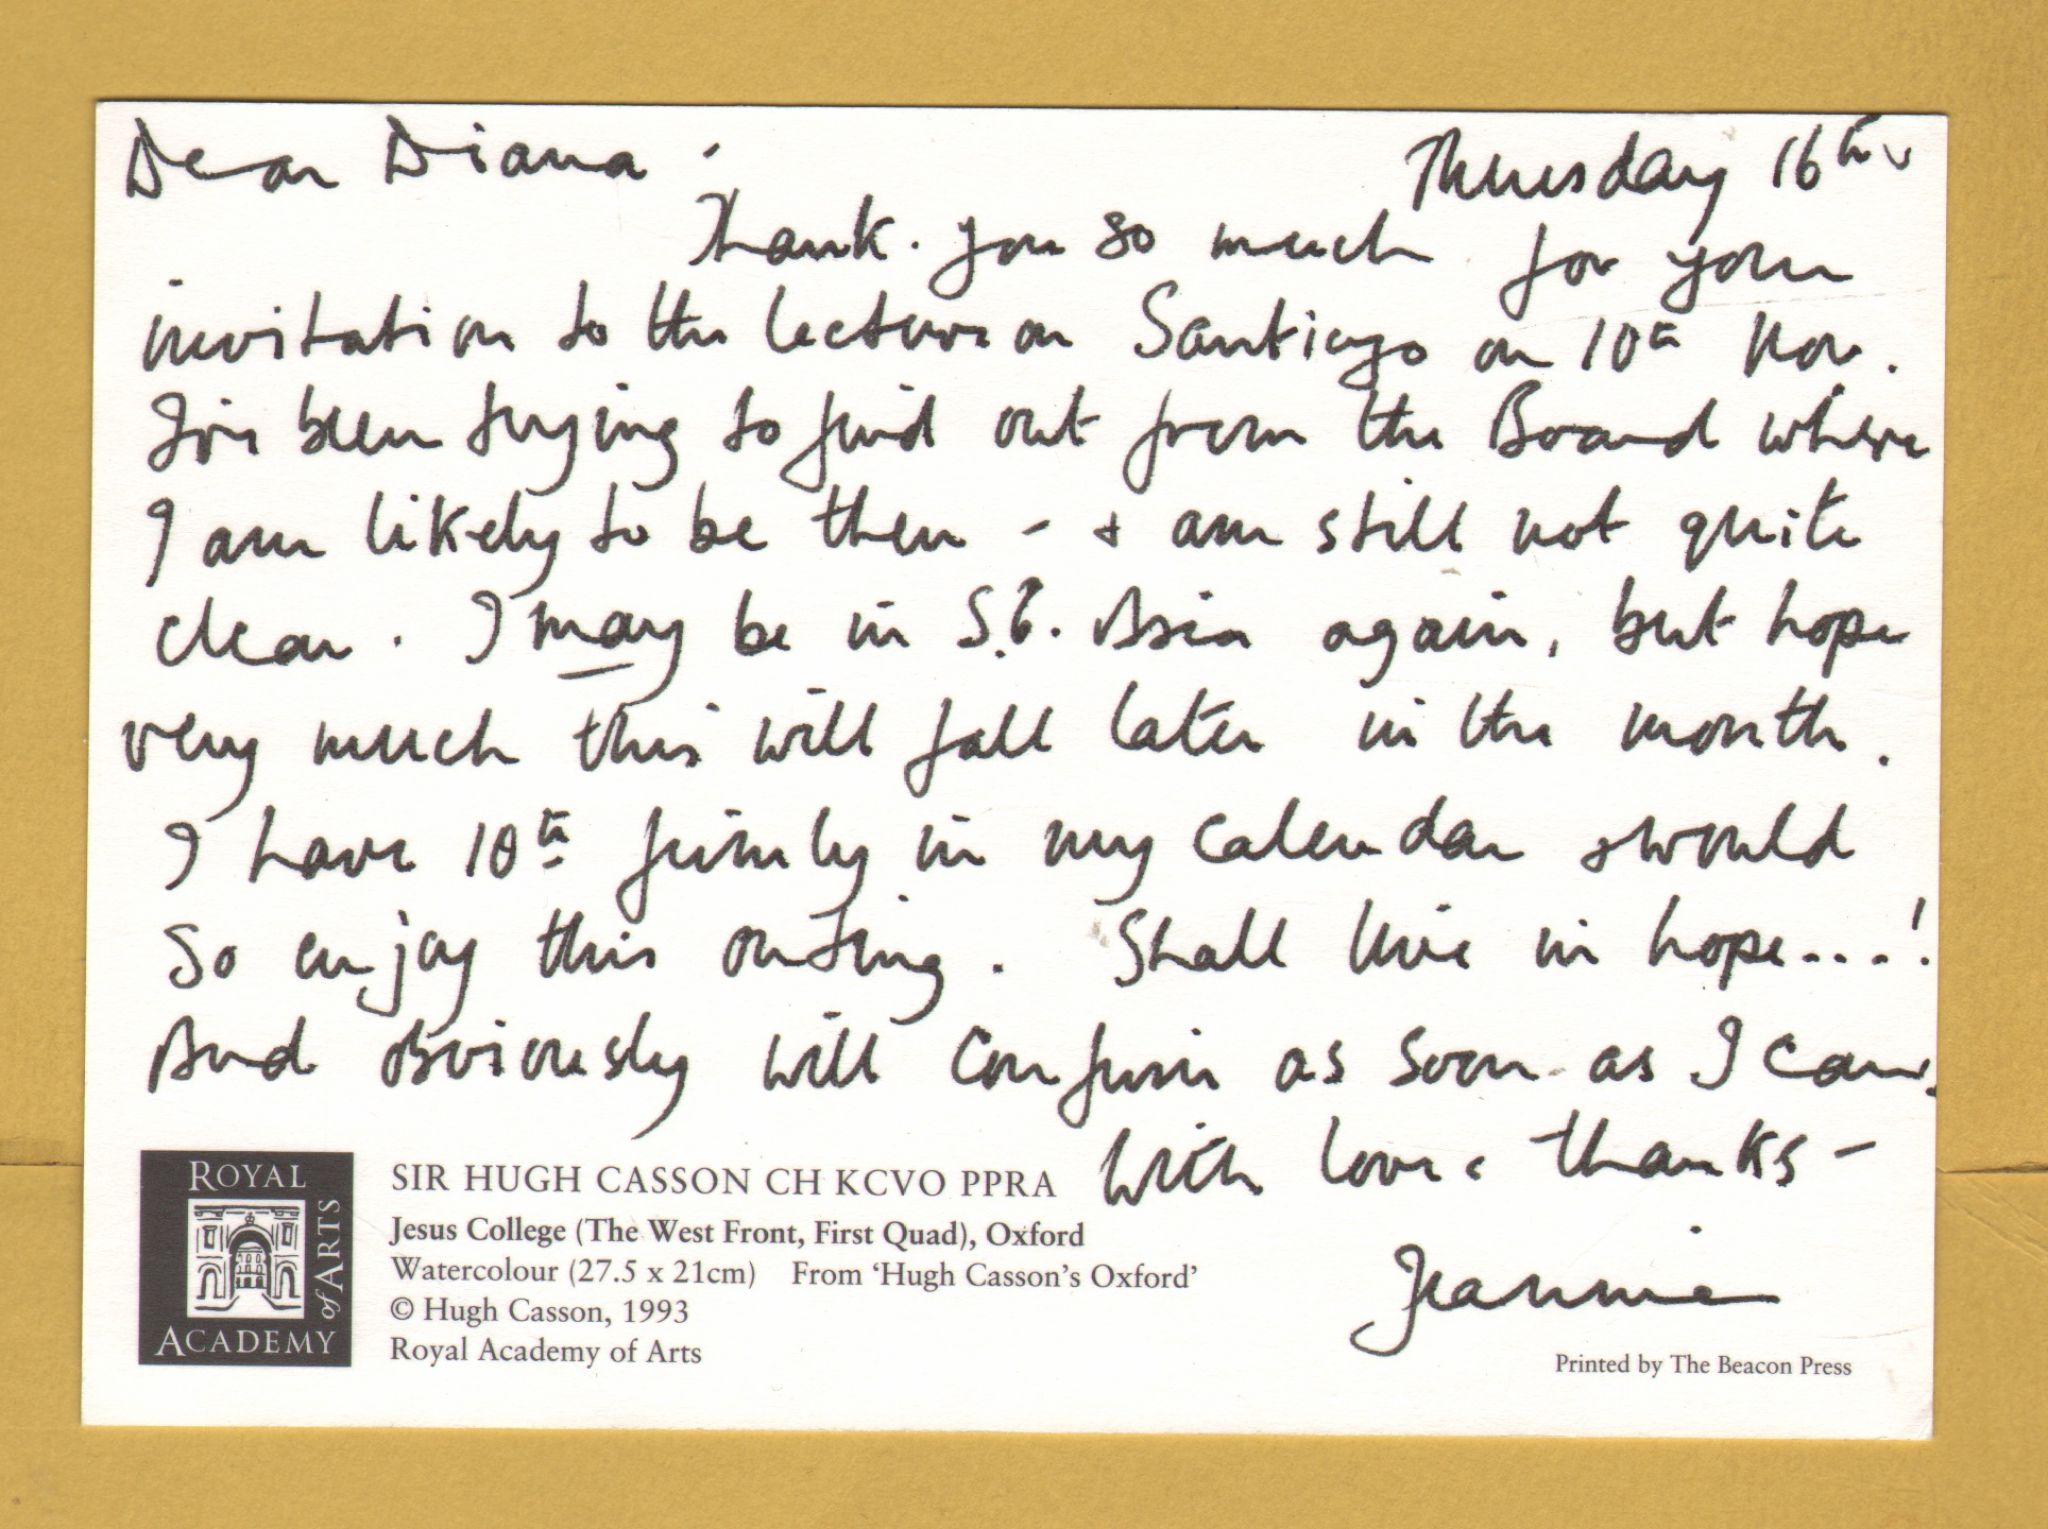 Dear Diana - Thursday 16th
Thank you so much for your
invitation to the lecture on Santiago on 10th Nov.
I've been trying to find out from the Board where
I am likely to be then - + am still not quite
clear. I may be in S.E. Asia again, but hope
very much this will fall later in the month.
I have 10th firmly in my calendar + would
so enjoy this outing. Shall live in hope....!
And obviously will confirm as soon as I can.
With love & thanks -
Jeannie
ROYAL
ACADEMY
of ARTS
SIR HUGH CASSON CH KCVO PPRA
Jesus College (The West Front, First Quad), Oxford
Watercolour (27.5 x 21cm) From ‘Hugh Casson’s Oxford’
© Hugh Casson, 1993
Royal Academy of Arts
Printed by The Beacon Press